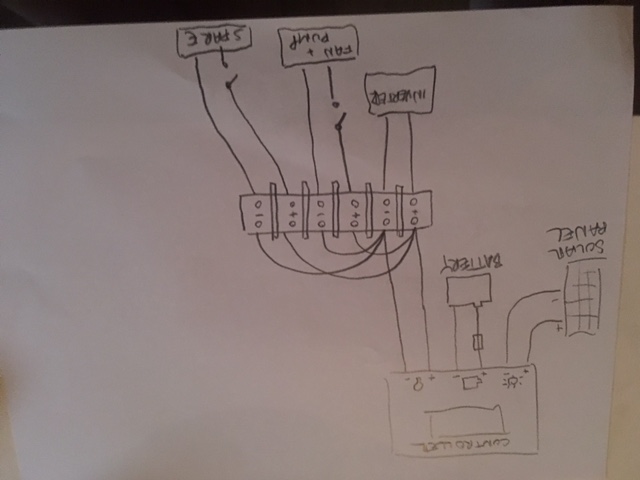 CONTROLLER
+ - + - + -
+
-
SOLAR
PANEL
BATTERY
+ - + - + -
INVERTER
FAN +
PUMP
SPARE